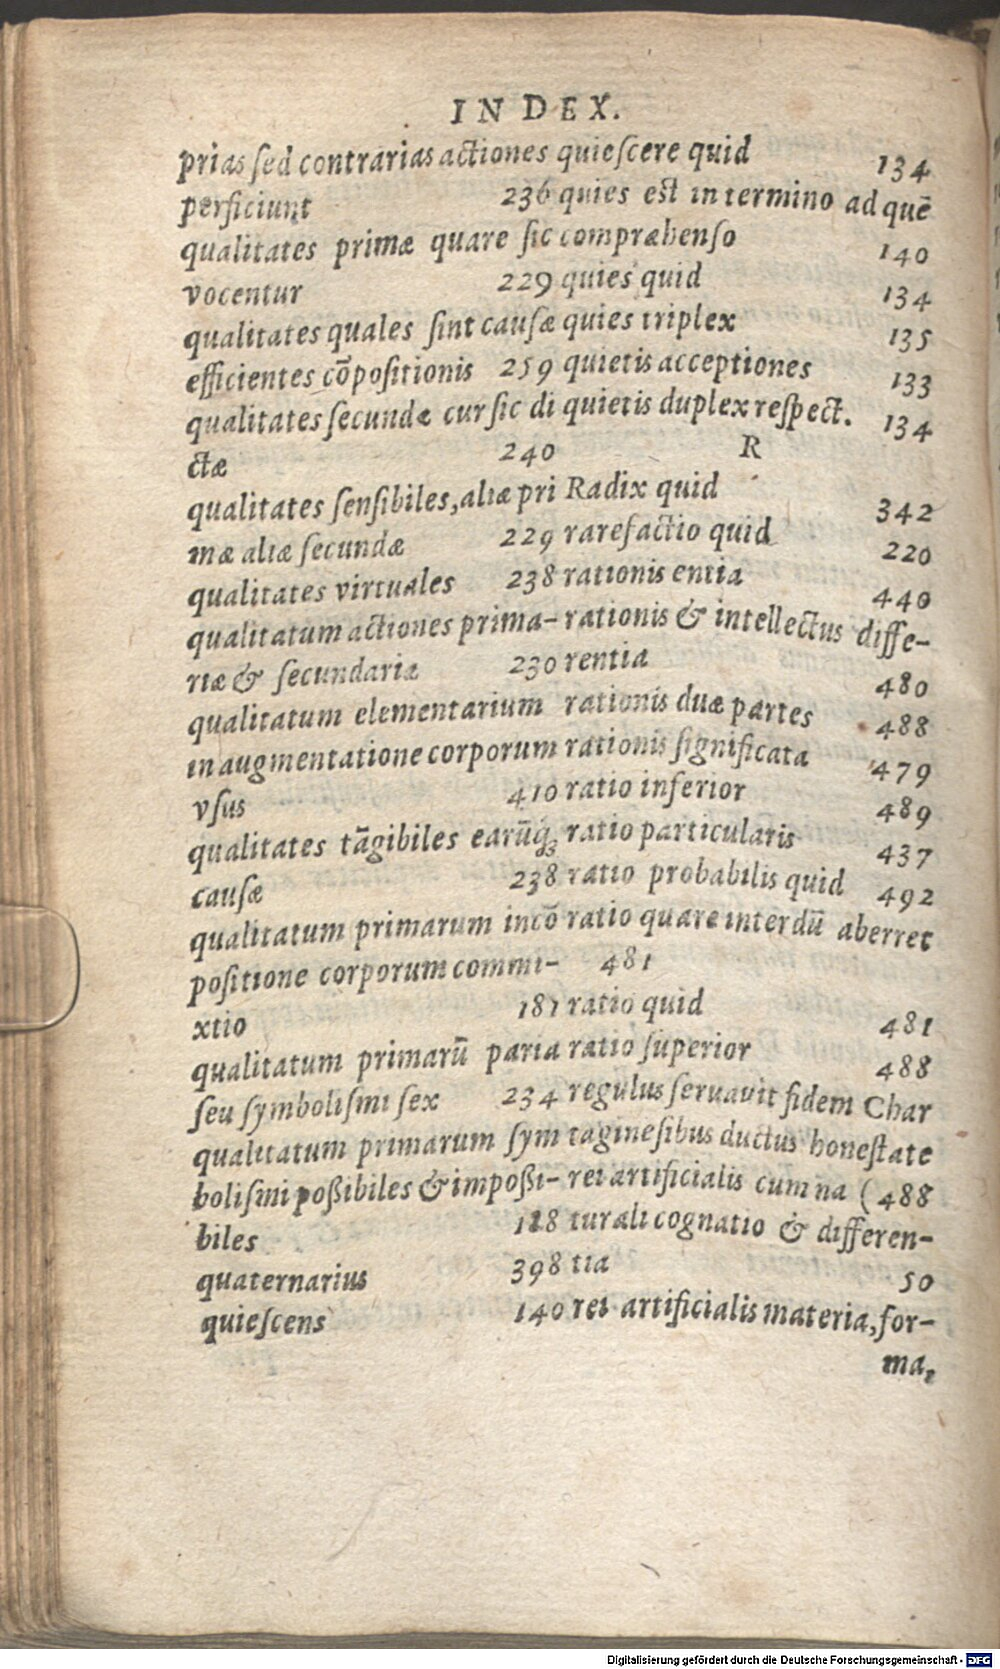 INDEX.
prias sed contrarias actiones
perficiunt 236
qualitates primæ quare sic
vocentur 229
qualitates quales sint causæ
efficientes cōpositionis 259
qualitates secundæ cur sic di
ctæ 240
qualitates sensibiles, aliæ pri
mæ aliæ secundæ 229
qualitates virtuales 238
qualitatum actiones prima-
riæ & secundariæ 230
qualitatum elementarium
in augmentatione corporum
vsus 410
qualitates tāgibiles earūq́;
causæ 238
qualitatum primarum incō
positione corporum commi-
xtio 181
qualitatum primarū paria
seu symbolismi sex 234
qualitatum primarum sym
bolismi poßibiles & impoßi-
biles 118
quaternarius 398
quiescens 140
quiescere quid 134
quies est in termino ad quē
compræhenso 140
quies quid 134
quies triplex 135
quietis acceptiones 133
quietis duplex respect. 134
R
Radix quid 342
rarefactio quid 220
rationis entia 440
rationis & intellectus diffe-
rentia 480
rationis duæ partes 488
rationis significata 479
ratio inferior 489
ratio particularis 437
ratio probabilis quid 492
ratio quare interdū aberret
481
ratio quid 481
ratio superior 488
regulus seruauit fidem Char
taginesibus ductus honestate
rei artificialis cum na (488
turali cognatio & differen-
tia 50
rei artificialis materia, for-
ma,
Digitalisierung gefördert durch die Deutsche Forschungsgemeinschaft - DFG